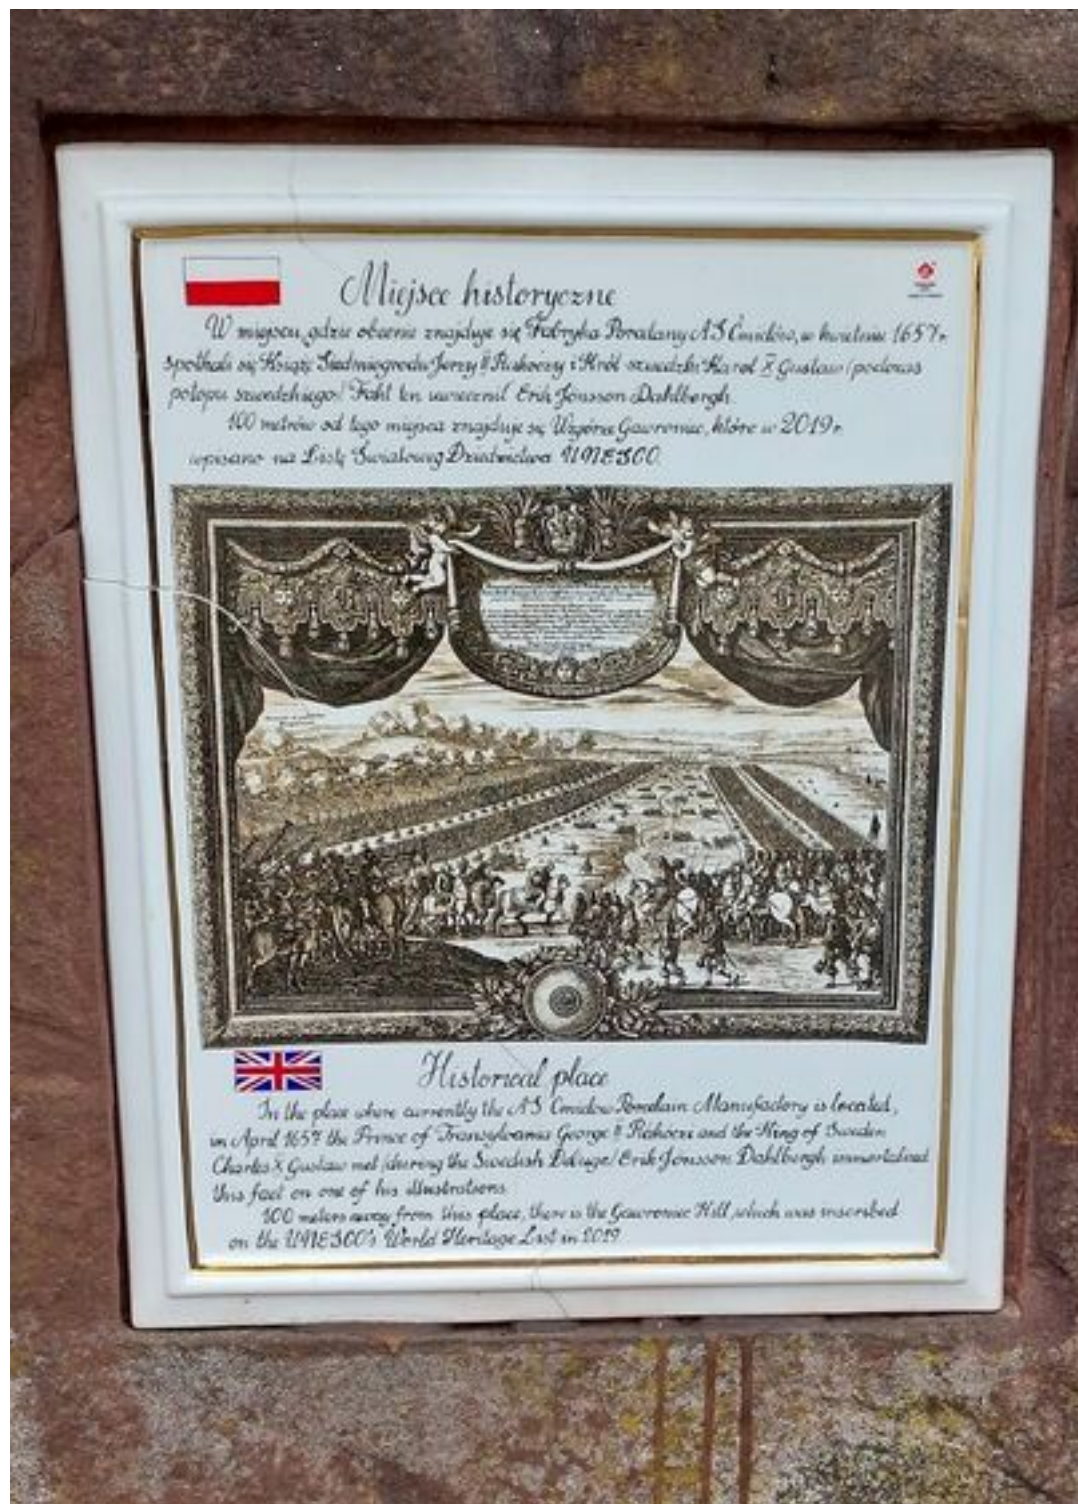 Miejsce historyczne
W miejscu, gdzie obecnie znajduje się Fabryka Porcelany AS Ćmielów, w kwietniu 1657 r.
spotkali się Książę Siedmiogrodu Jerzy II Rakoczy i Król szwedzki Karol X Gustaw /podczas
potopu szwedzkiego/. Fakt ten uwiecznił Erik Jönsson Dahlbergh.
100 metrów od tego miejsca znajduje się Wzgórze Gawroniec, które w 2019 r.
wpisano na Listę Światowego Dziedzictwa UNESCO.
Historical place
In the place where currently the AS Cmielow Porcelain Manufactory is located,
in April 1657 the Prince of Transylvania George II Rakoczi and the King of Sweden
Charles X Gustaw met /during the Swedish Deluge/ Erik Jönsson Dahlbergh immortalized
this fact on one of his illustrations.
100 meters away from this place, there is the Gawroniec Hill, which was inscribed
on the UNESCO's World Heritage List in 2019